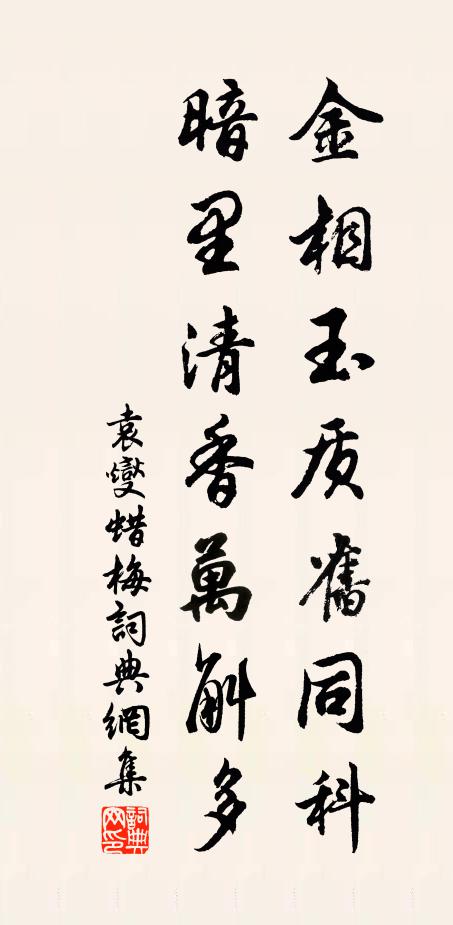 金相玉质舊同科
暗里清香萬斛多
袁燮蜡梅詞典網集
詞典网印